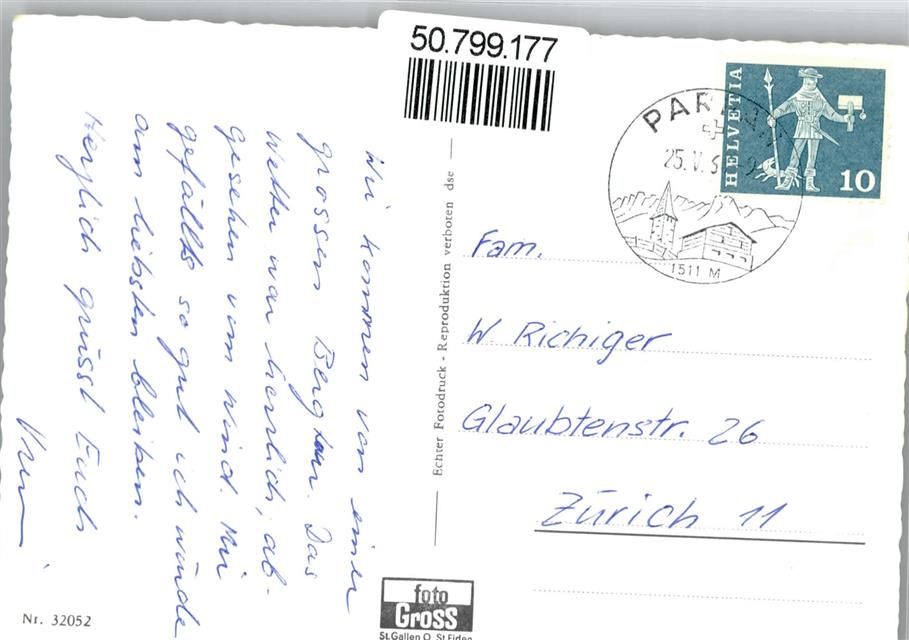 50.799.177
Wir kommen von einer
grossen Bergtour. Das
Wetter war herrlich, ab-
gesehen vom Wind. Mir
gefällts so gut ich würde
am liebsten bleiben.
Herzlich grüsst Euch
Echter Fotodruck - Reproduktion verboten dse
HELVETIA
10
25. V.
1511 M
Fam.
W Richiger
Glaubtenstr. 26
Zürich 11
foto
Gross
St. Gallen O, St. Fiden
Nr. 32052